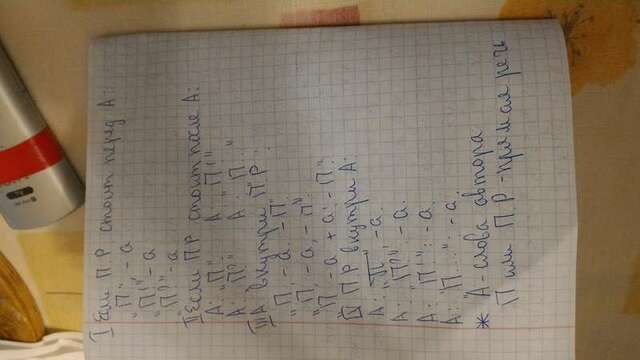 I Если ПР стоит перед А:
"П", - а
"П!" - а
"П?" - а
II Если ПР стоит после А:
А: "П". А: "П!"
А: "П?" А: "П..."
III А внутри ПР.
"П, - а. - П".
"П, - а, - п".
"П, - а + а: - П".
IV ПР внутри А:
А: "П", - а.
А: "П?" - а.
А: "П!" - а.
А: "П..." - а.
* А - слова автора
П или ПР - прямая речь